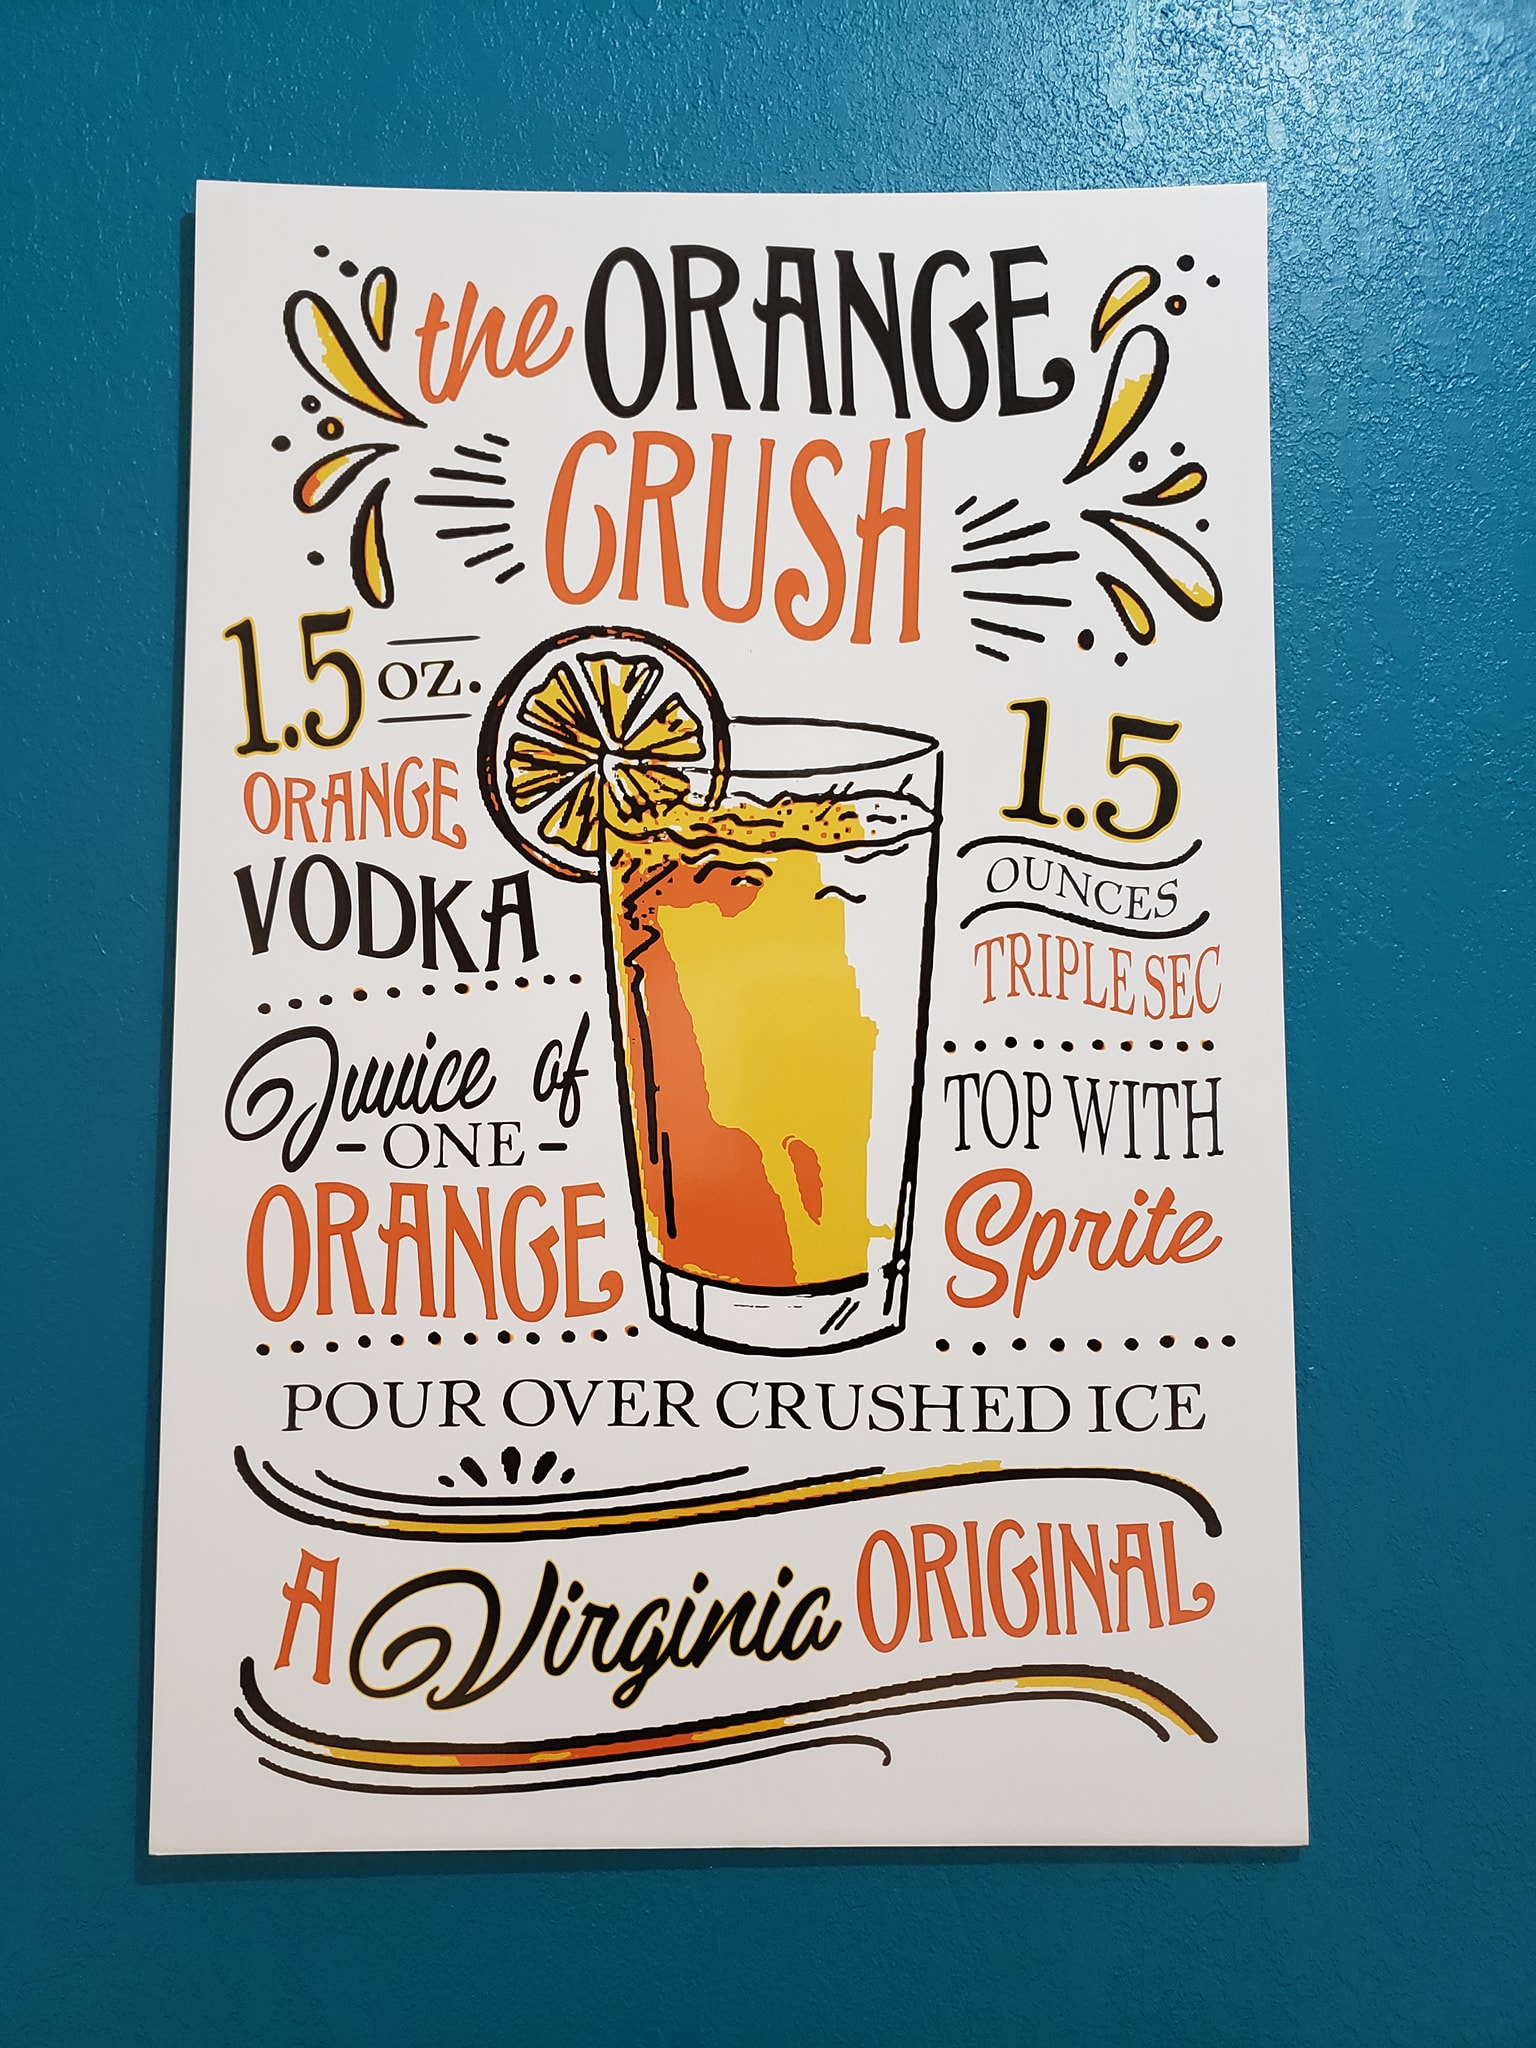 the ORANGE
CRUSH
1.5 OZ.
ORANGE
VODKA
Juuice of
- ONE -
ORANGE
1.5
OUNCES
TRIPLE SEC
TOP WITH
Sprite
POUR OVER CRUSHED ICE
A Virginia ORIGINAL